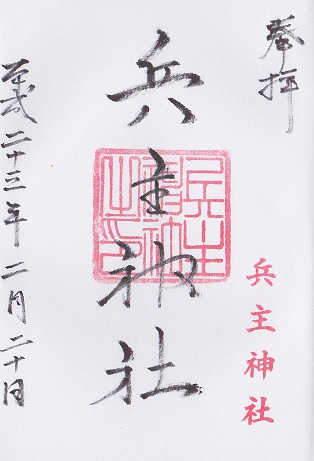 奉拝
兵主神社
兵主神社
平成二十三年二月二十日